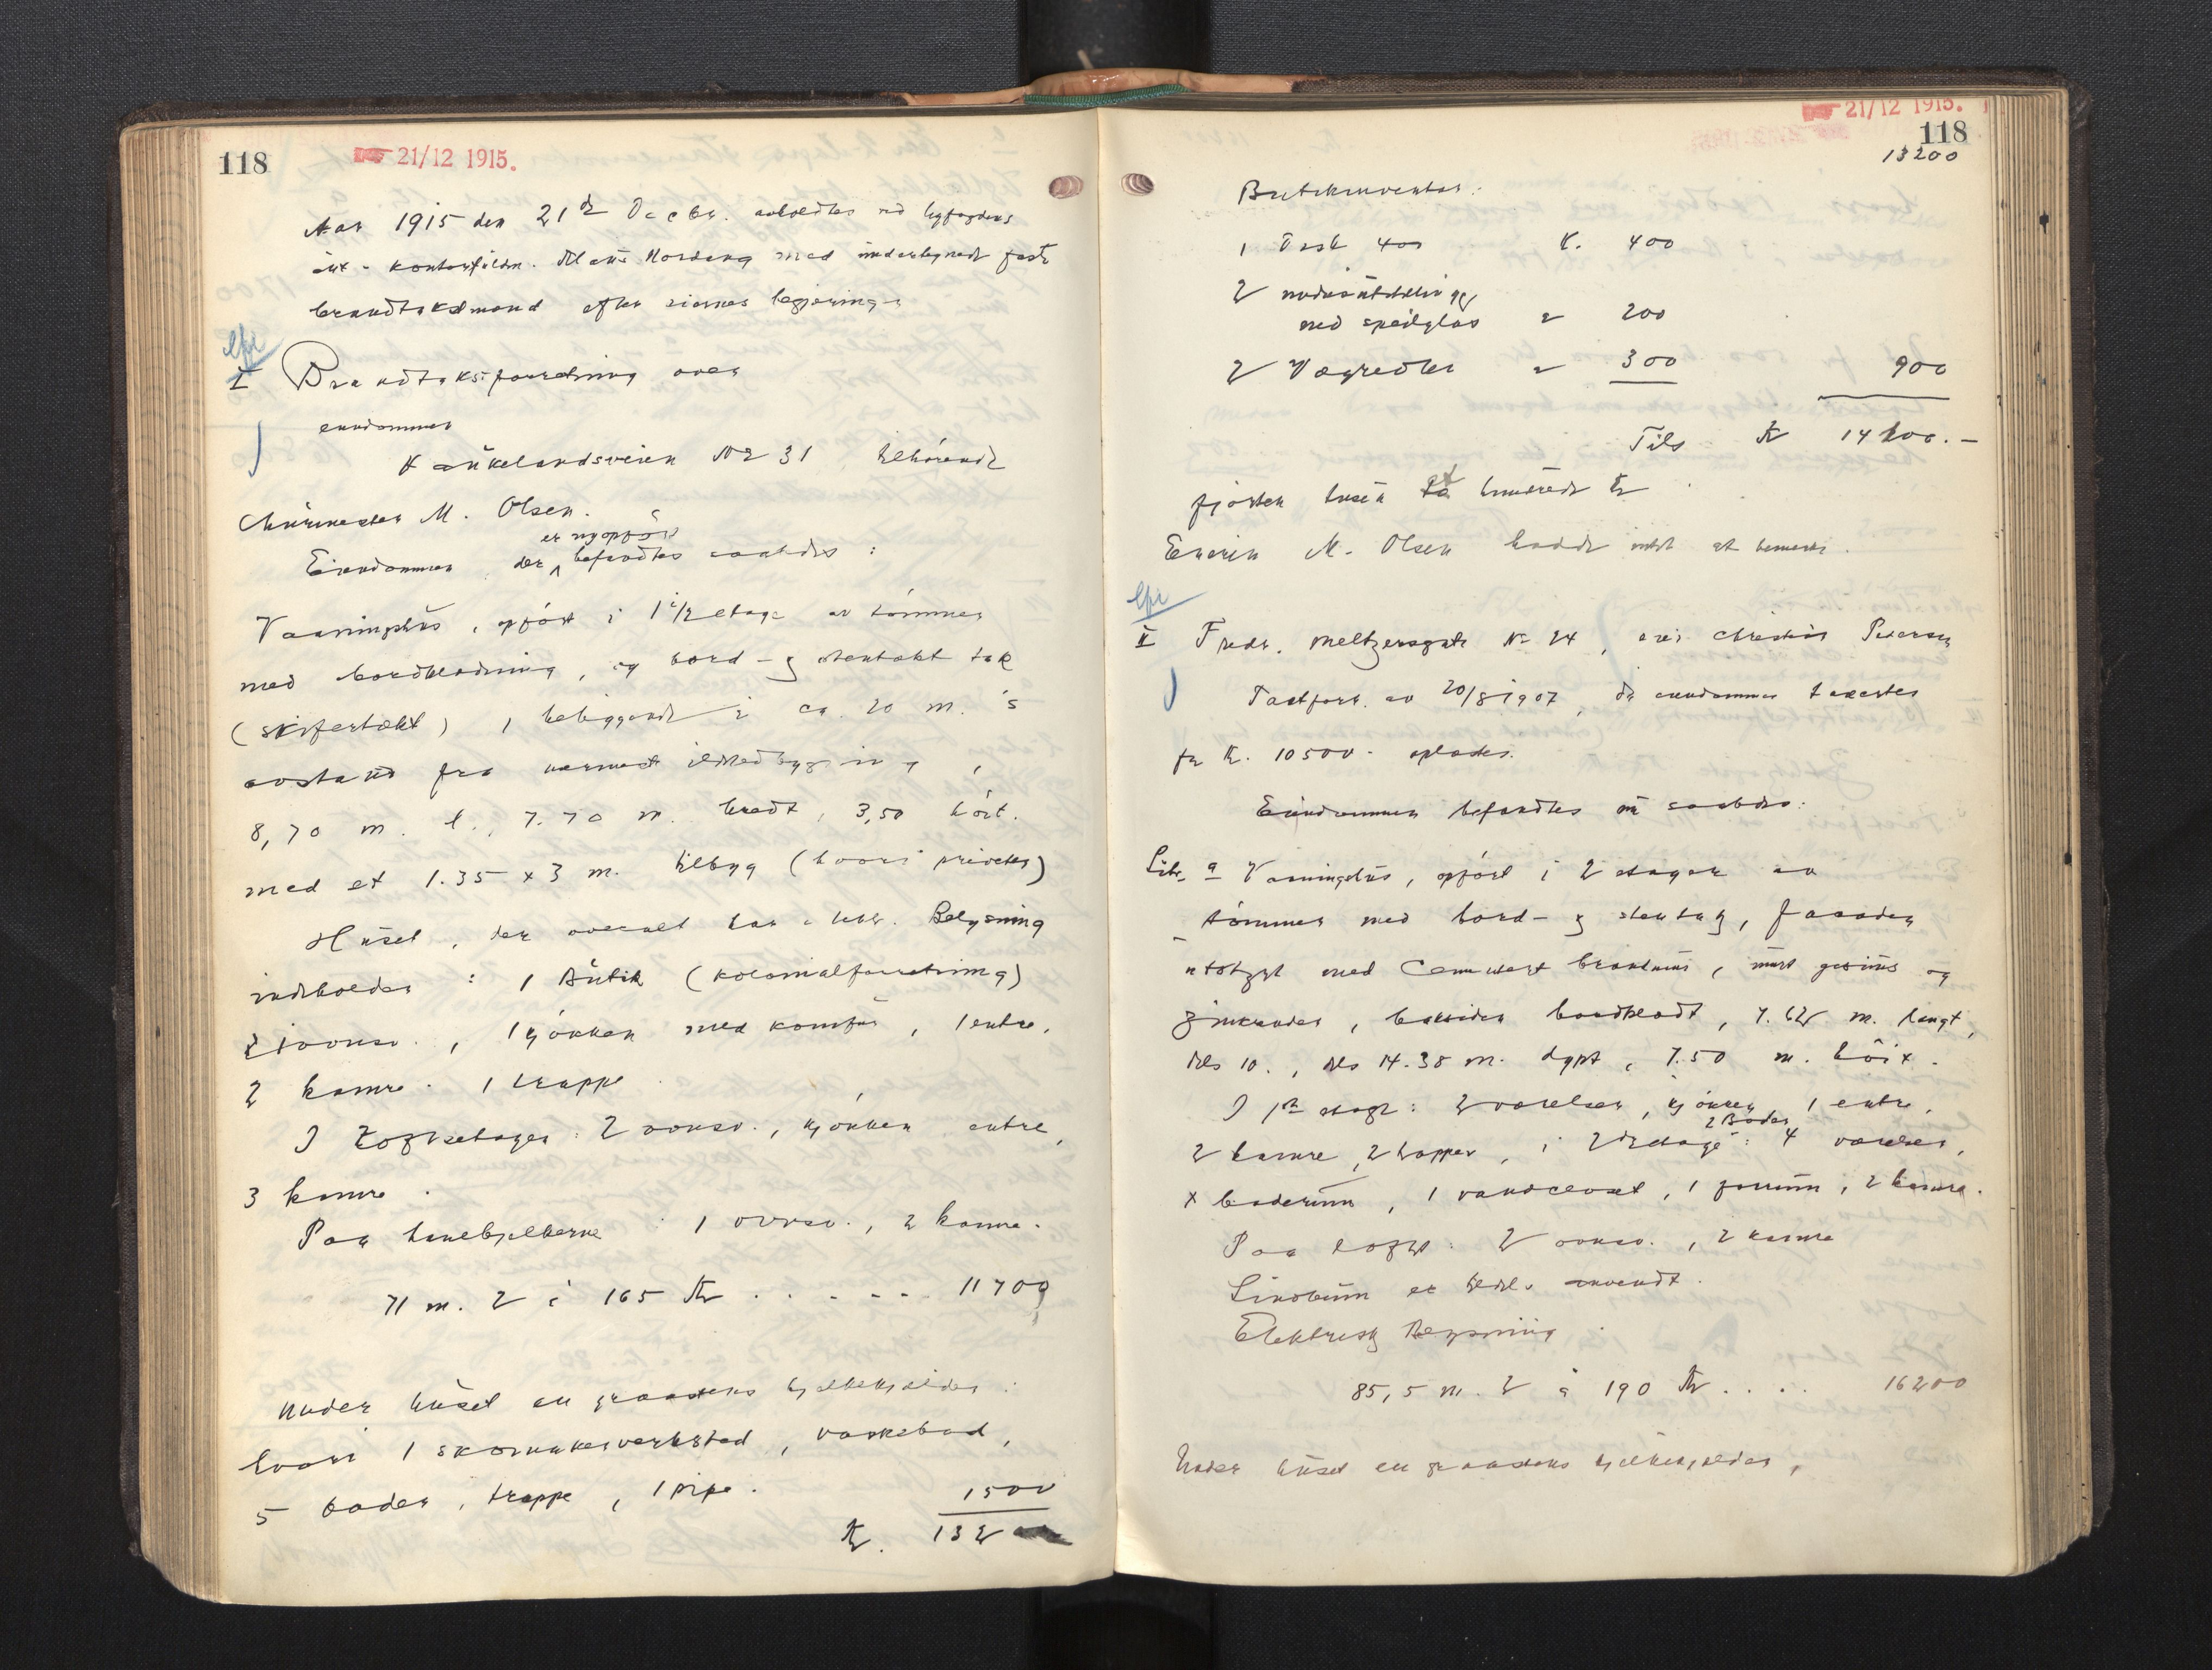 118
21/12 1915.
Aar 1915 den 21de Decbr. avholdtes ved byfogdens
aut. kontorfuldm. Nordang med undertegnede faste
brandtakstmænd efter eiernes begjæring
I Brandtakstforretning over
eiendommen
Kaukelandsveien No 31 tilhørende
Murmester M. Olsen.
er nyopført
Eiendommen der befandtes saaledes:
Vaaningshus, opført i 1 1/2 etage av tømmer
med bordklædning, og bord- og stentækt tak
(skifertækt), beliggende i ca. 20 m.s
avstand fra nærmeste ildstedbygning,
8,70 m. l., 7.70 m. bredt, 3,50 høit.
med et 1.35 x 3 m. tilbyg (hvori priveter)
Huset, der overalt har elektr. Belysning
indeholder: 1 Butik (kolonialforretning)
2 vær., 1 kjøkken med komfur, 1 entre,
2 kamre. 1 trappe
I Loftsetagen: 2 vær., kjøkken entre,
3 kamre.
Paa hanebjelkerne: 1 vær., 2 kamre.
71 m. 2 à 165 Kr . . . . . . 11700
Under huset en graastens kjelderkjelder
hvori 1 skomakerverksted, vaskebod,
5 boder, trappe, 1 pipe. 1500
Kr. 132
21/12 1915.
118
13200
Butikinventar:
1 Disk 400 K. 400
2
med speilglas " 200
2 Vægreoler " 300 900
Tils Kr 14100.-
fjorten tusen et hundrede Kr
Eieren M. Olsen hadde intet at bemerke.
II Fredr. Meltzersgate No 24, eier Christian Petersen
Takstforr. av 20/8 1907, da eiendommen taxertes
for Kr. 10500.- oplæstes.
Eiendommen befandtes nu saaledes:
Litr. a Vaaningshus, opført i 2 etager av
tømmer med bord- og stentag, facaden
utstyrt med Cementert brandmur, muret gesims og
zinkrender, baksiden bordklædt, 7.62 m. langt,
dels 10., dels 14.38 m. dypt, 7.50 m. høit.
I 1ste etage: 2 værelser, kjøkken, 1 entre,
2 Boder
2 kamre, 2 trapper, i 2den etage: 4 værelser,
x baderum, 1 vandcloset, 1 forrum, 2 kamre.
Paa loftet: 2 vær., 2 kamre
Linoleum er tildels anvendt.
Elektrisk Belysning.
85,5 m. 2 à 190 Kr. . . . 16200
Under huset en graastens kjelderkjelder,